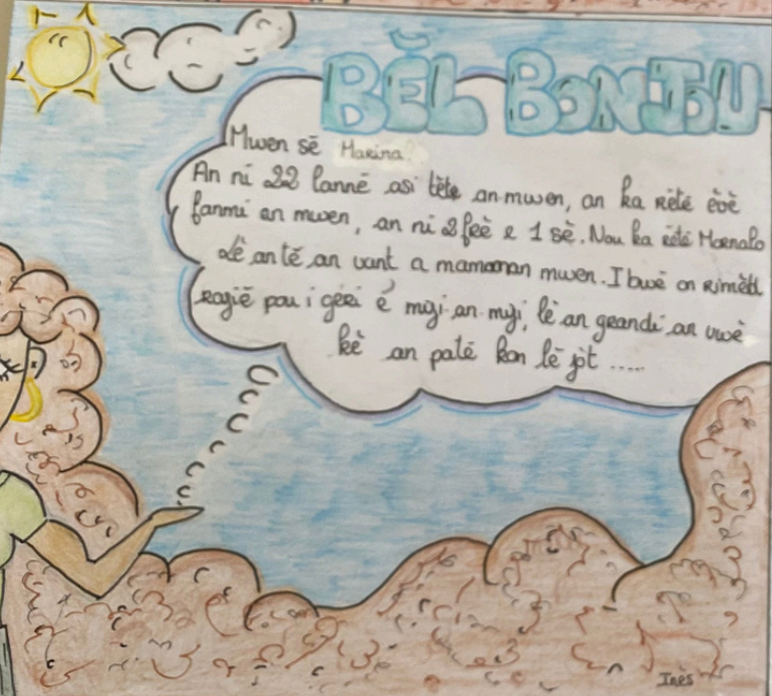 BĔL BONJOU
Mwen sé Marina
An ni 22 lanné asi tèt an mwen, an ka rété èvè
fanmi an mwen, an ni 2 frè e 1 sè. Nou ka rété
Lè an té an vant a mamman mwen. I bwè on rimèd
razié pou i géri é mizi an mizi, lè an grandi an vwè
kè an paté kon lé jòt .....
Inès